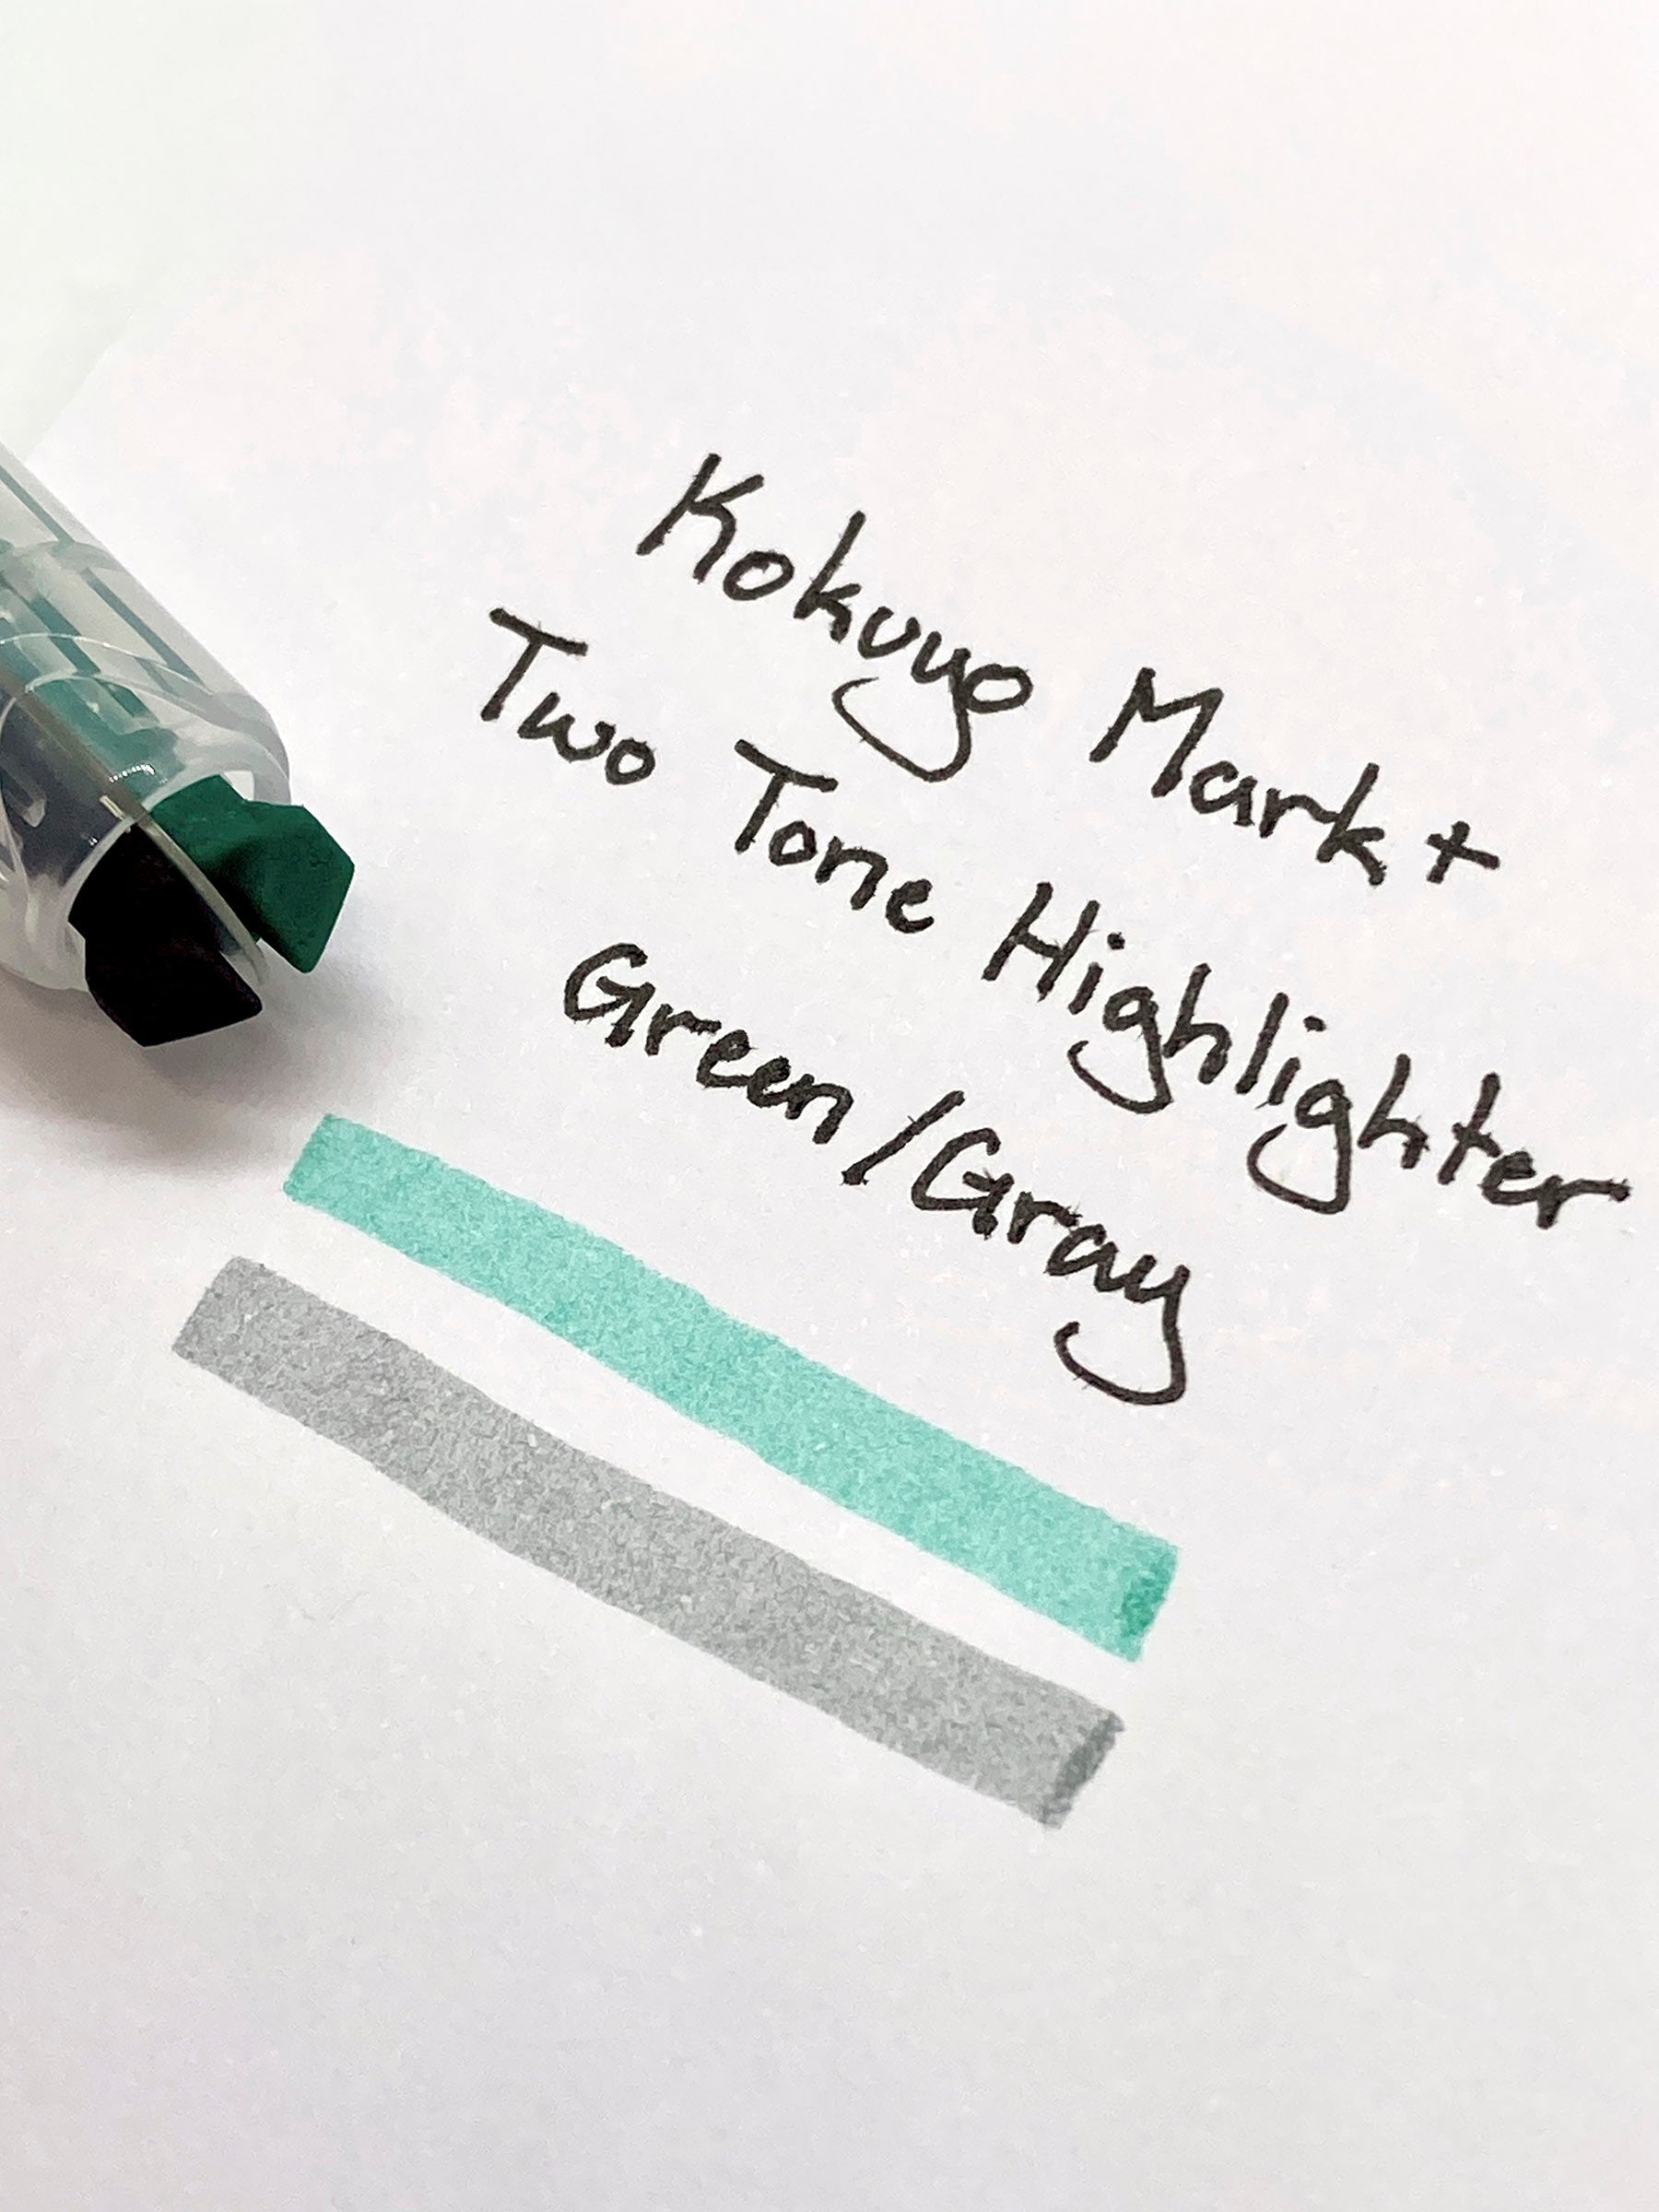 Kokuyo Mark+
Two Tone Highlighter
Green/Gray